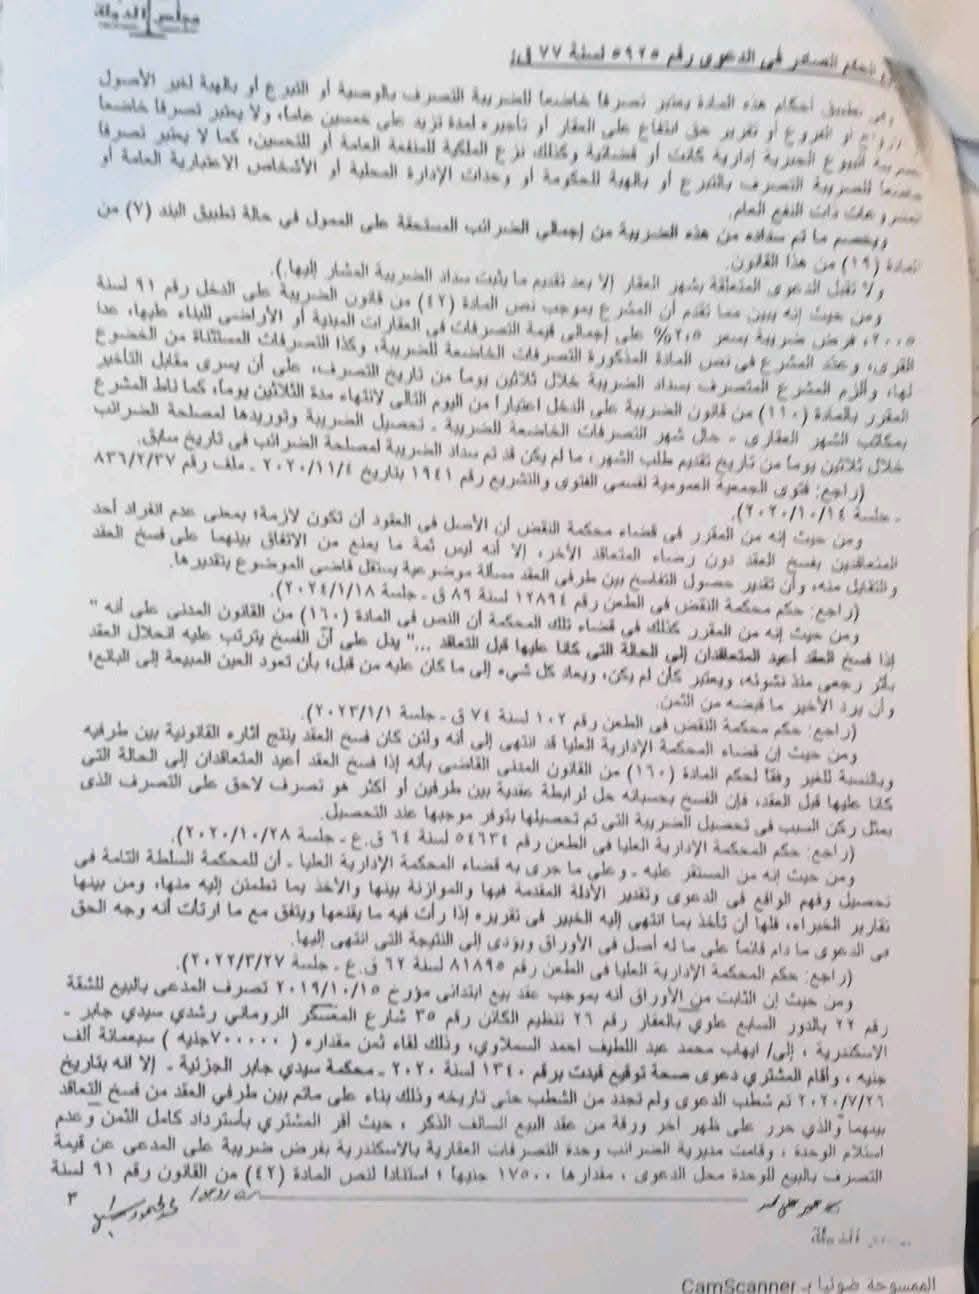 مجلس الدولة
الحكم الصادر في الدعوى رقم ٥٩٢٥ لسنة ٧٧ ق
وفي تطبيق أحكام هذه المادة يعتبر تصرفا خاضعا للضريبة التصرف بالوصية أو التبرع أو بالهبة لغير الأصول
أو الأزواج أو الفروع أو تقرير حق انتفاع على العقار أو تأجيره لمدة تزيد على خمسين عاما، ولا يعتبر تصرفا خاضعا
للضريبة البيوع الجبرية إدارية كانت أو قضائية وكذلك نزع الملكية للمنفعة العامة أو للتحسين، كما لا يعتبر تصرفا
خاضعا للضريبة التصرف بالتبرع أو بالهبة للحكومة أو وحدات الإدارة المحلية أو الأشخاص الاعتبارية العامة أو
لمشروعات ذات النفع العام.
ويخصم ما تم سداده من هذه الضريبة من إجمالي الضرائب المستحقة على الممول في حالة تطبيق البند (٧) من
المادة (١٩) من هذا القانون.
ولا تقبل الدعوى المتعلقة بشهر العقار إلا بعد تقديم ما يثبت سداد الضريبة المشار إليها.).
ومن حيث إنه يبين مما تقدم أن المشرع بموجب نص المادة (٤٢) من قانون الضريبة على الدخل رقم ٩١ لسنة
٢٠٠٥، فرض ضريبة بسعر ٢,٥% على إجمالي قيمة التصرفات في العقارات المبنية أو الأراضي للبناء عليها، عدا
القرى، وعدد المشرع في نص المادة المذكورة التصرفات الخاضعة للضريبة، وكذا التصرفات المستثناة من الخضوع
لها، وألزم المشرع المتصرف بسداد الضريبة خلال ثلاثين يوماً من تاريخ التصرف، على أن يسرى مقابل التأخير
المقرر بالمادة (١١٠) من قانون الضريبة على الدخل اعتباراً من اليوم التالي لانتهاء مدة الثلاثين يوماً، كما ناط المشرع
بمكاتب الشهر العقاري - حال شهر التصرفات الخاضعة للضريبة - تحصيل الضريبة وتوريدها لمصلحة الضرائب
خلال ثلاثين يوماً من تاريخ تقديم طلب الشهر، ما لم يكن قد تم سداد الضريبة لمصلحة الضرائب في تاريخ سابق.
(راجع: فتوى الجمعية العمومية لقسمى الفتوى والتشريع رقم ١٩٤١ بتاريخ ٢٠٢٠/١١/٤ - ملف رقم ٨٣٦/٢/٣٧
- جلسة ٢٠٢٠/١٠/١٤).
ومن حيث إنه من المقرر في قضاء محكمة النقض أن الأصل في العقود أن تكون لازمة؛ بمعنى عدم انفراد أحد
المتعاقدين بفسخ العقد دون رضاء المتعاقد الآخر، إلا أنه ليس ثمة ما يمنع من الاتفاق بينهما على فسخ العقد
والتقايل منه، وأن تقدير حصول التفاسخ بين طرفي العقد مسألة موضوعية يستقل قاضي الموضوع بتقديرها.
(راجع: حكم محكمة النقض في الطعن رقم ١٢٨٩٤ لسنة ٨٩ ق - جلسة ٢٠٢٤/١/١٨).
ومن حيث إنه من المقرر كذلك في قضاء تلك المحكمة أن النص في المادة (١٦٠) من القانون المدني على أنه "
إذا فسخ العقد أعيد المتعاقدان إلى الحالة التي كانا عليها قبل التعاقد ..." يدل على أنّ الفسخ يترتب عليه انحلال العقد
بأثر رجعي منذ نشوئه، ويعتبر كأن لم يكن، ويعاد كل شيء إلى ما كان عليه من قبل؛ بأن تعود العين المبيعة إلى البائع؛
وأن يرد الأخير ما قبضه من الثمن.
(راجع: حكم محكمة النقض في الطعن رقم ١٠٢ لسنة ٧٤ ق - جلسة ٢٠٢٣/١/١).
ومن حيث إن قضاء المحكمة الإدارية العليا قد انتهى إلى أنه ولئن كان فسخ العقد ينتج آثاره القانونية بين طرفيه
وبالنسبة للغير وفقا لحكم المادة (١٦٠) من القانون المدني القاضي بأنه إذا فسخ العقد أعيد المتعاقدان إلى الحالة التي
كانا عليها قبل العقد، فإن الفسخ بحسبانه حل لرابطة عقدية بين طرفين أو أكثر هو تصرف لاحق على التصرف الذي
يمثل ركن السبب في تحصيل الضريبة التي تم تحصيلها بتوفر موجبها عند التحصيل.
(راجع: حكم المحكمة الإدارية العليا في الطعن رقم ٥٤٦٣٤ لسنة ٦٤ ق.ع - جلسة ٢٠٢٠/١٠/٢٨).
ومن حيث إنه من المستقر عليه - وعلى ما جرى به قضاء المحكمة الإدارية العليا - أن للمحكمة السلطة التامة في
تحصيل وفهم الواقع في الدعوى وتقدير الأدلة المقدمة فيها والموازنة بينها والأخذ بما تطمئن إليه منها، ومن بينها
تقارير الخبراء، فلها أن تأخذ بما انتهى إليه الخبير في تقريره إذا رأت فيه ما يقنعها ويتفق مع ما ارتأت أنه وجه الحق
في الدعوى ما دام قائماً على ما له أصل في الأوراق ويؤدي إلى النتيجة التي انتهى إليها.
(راجع: حكم المحكمة الإدارية العليا في الطعن رقم ٨١٨٩٥ لسنة ٦٢ ق.ع - جلسة ٢٠٢٢/٣/٢٧).
ومن حيث إن الثابت من الأوراق أنه بموجب عقد بيع ابتدائي مؤرخ ٢٠١٩/١٠/١٥ تصرف المدعى بالبيع للشقة
رقم ٢٢ بالدور السابع علوي بالعقار رقم ٢٦ تنظيم الكائن رقم ٣٥ شارع المعسكر الروماني رشدي سيدي جابر -
الاسكندرية ، إلى/ ايهاب محمد عبد اللطيف احمد السملاوي، وذلك لقاء ثمن مقداره ( ٧٠٠٠٠٠جنيه ) سبعمائة ألف
جنيه ، وأقام المشتري دعوى صحة توقيع قيدت برقم ١٣٤٠ لسنة ٢٠٢٠ - محكمة سيدي جابر الجزئية - إلا انه بتاريخ
٢٠٢٠/٧/٢٦ تم شطب الدعوى ولم تجدد من الشطب حتى تاريخه وذلك بناء على ماتم بين طرفي العقد من فسخ التعاقد
بينهما والذي حرر على ظهر اخر ورقة من عقد البيع السالف الذكر ، حيث أقر المشتري بأسترداد كامل الثمن وعدم
استلام الوحدة ، وقامت مديرية الضرائب وحدة التصرفات العقارية بالاسكندرية بفرض ضريبة على المدعى عن قيمة
التصرف بالبيع للوحدة محل الدعوى ، مقدارها ١٧٥٠٠ جنيهاً ؛ استنادا لنص المادة (٤٢) من القانون رقم ٩١ لسنة
٣
الدولة
الممسوحة ضوئيا بـ CamScanner